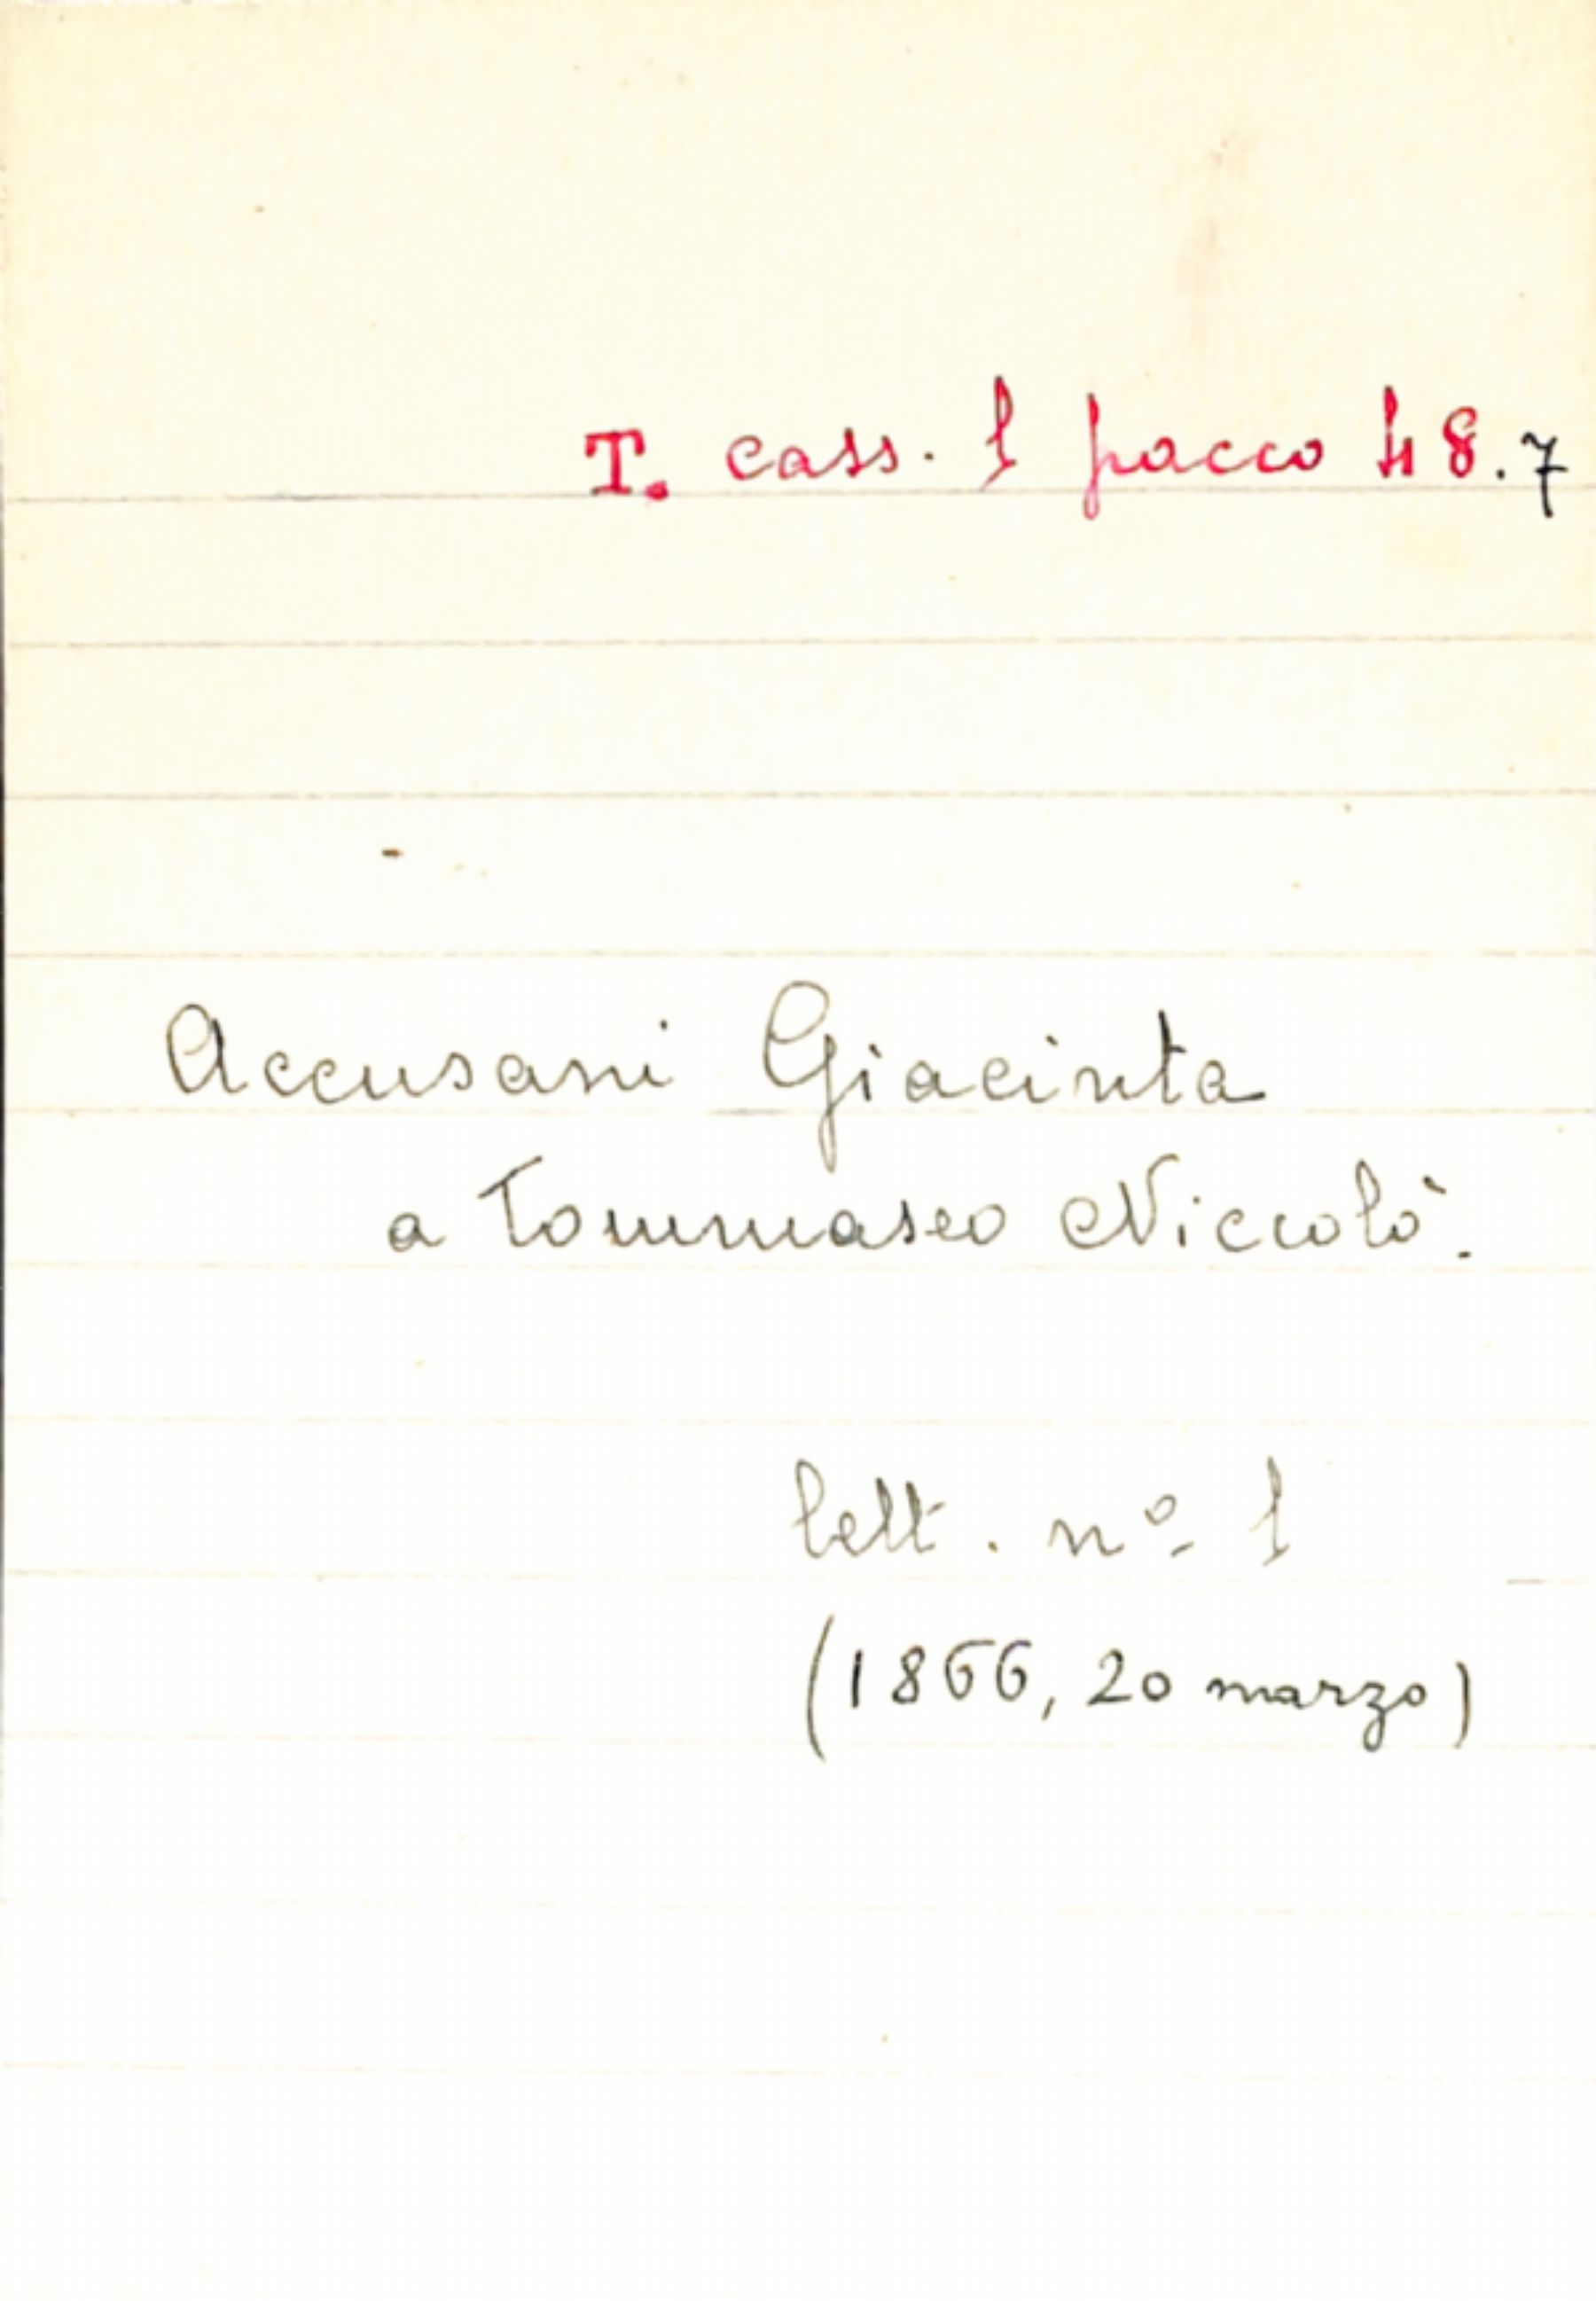 T. cass. 1 pacco 48.7
Accusani Giacinta
a Tommaseo Niccolò.
lett. nº 1
(1866, 20 marzo)